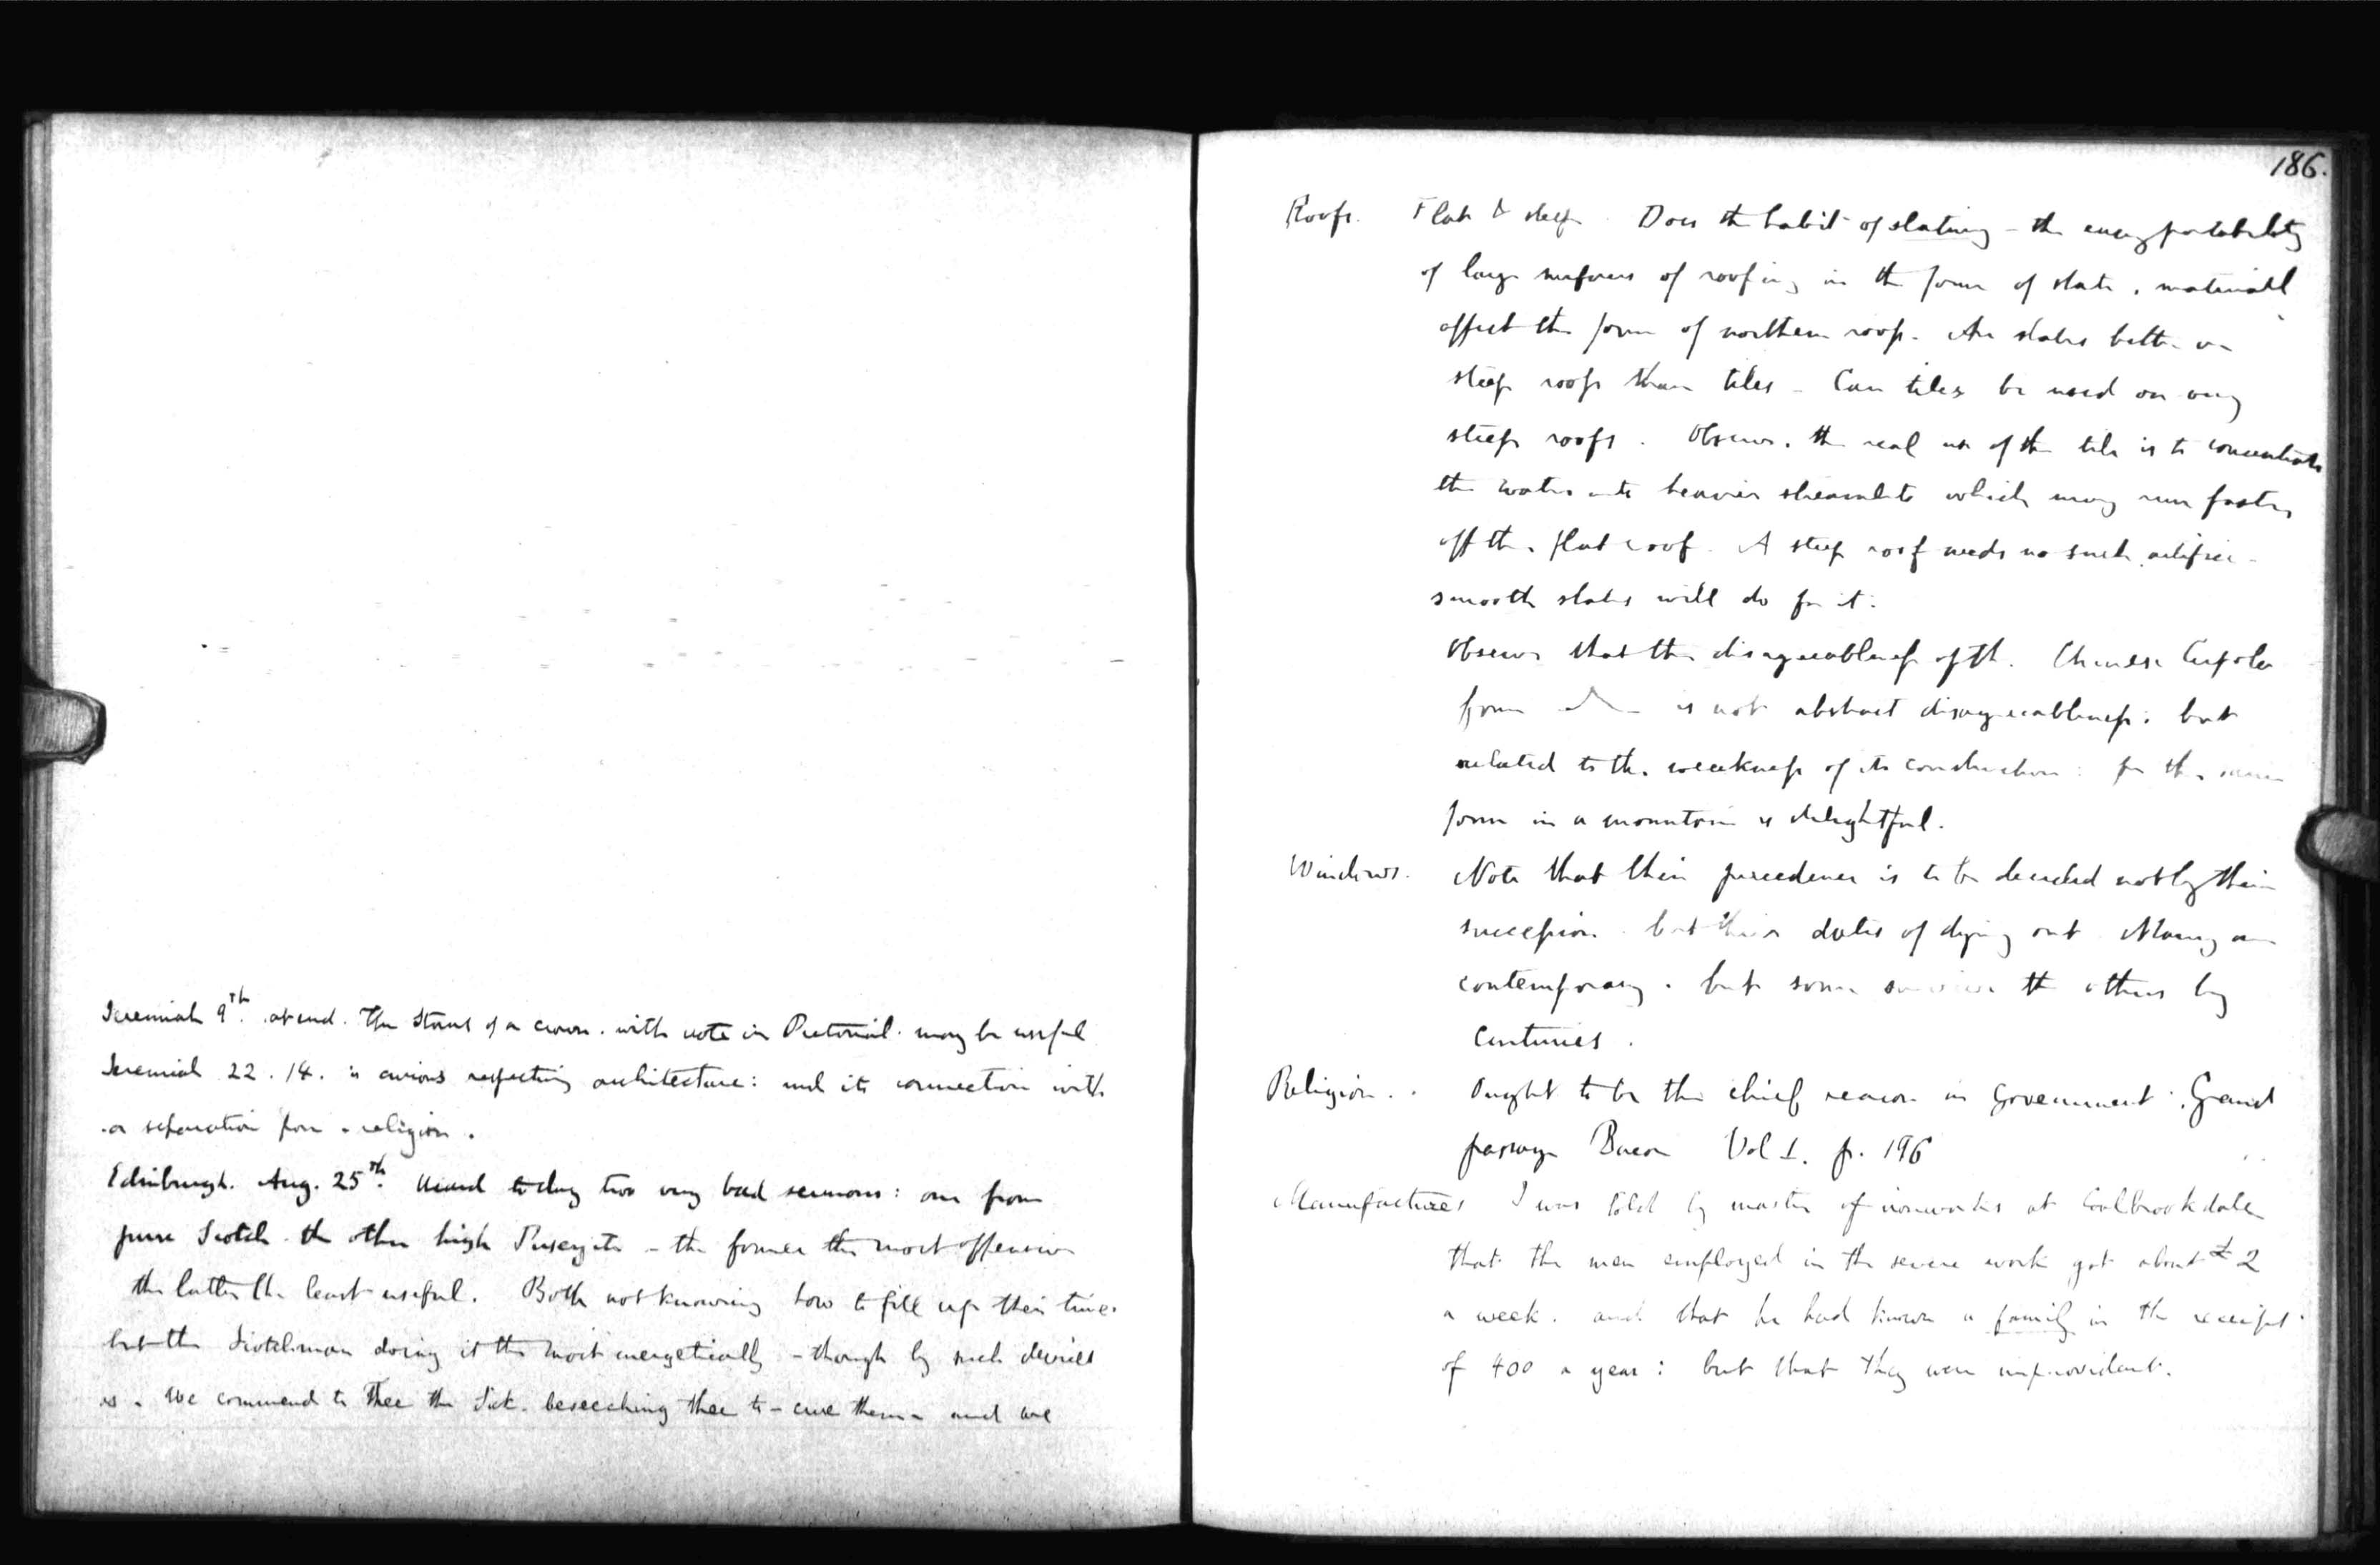 Jeremiah 9th. at end. The stones of a crown. with note in Pictorial. may be useful
Jeremiah 22. 14. is curious respecting architecture: and its connection with
a separation from religion.
Edinburgh. Aug. 25th. Heard today two very bad sermons: one from
pure Scotch the other high Puseyite - the former the most offensive
the latter the least useful. Both not knowing how to fill up their time.
but the Scotchman doing it the most energetically - though by such devices
as. We commend to Thee the Sick. beseeching thee to - cure them - and we
186.
Roofs. Flat & steep. Does the habit of slating - the easy portability
of large surfaces of roofing in the form of slate, material
affect the form of northern roofs. Are slates better on
steep roofs than tiles - Can tiles be used on very
steep roofs. Observe. the real use of the tile is to concentrate
the water into heavier streamlets which may run faster
off the flat roof. A steep roof needs no such artifice -
smooth slates will do for it.
Observe that the disagreableness of the Chinese Cupola
form is not abstract disagreeableness: but
related to the weakness of its construction: for the same
form in a mountain is delightful.
Windows. Note that their precedence is to be decided not by their
succession. but their dates of dying out Many are
contemporary. but some survive the others by
centuries.
Religion.. Ought to be the chief reason in Government. Grand
passage Bacon Vol 1. p. 196
Manufactures I was told by master of ironworks at Coalbrookdale
that the men employed in the severe work got about £2
a week. and that he had known a family in the receipt
of 400 a year: but that they were improvident.